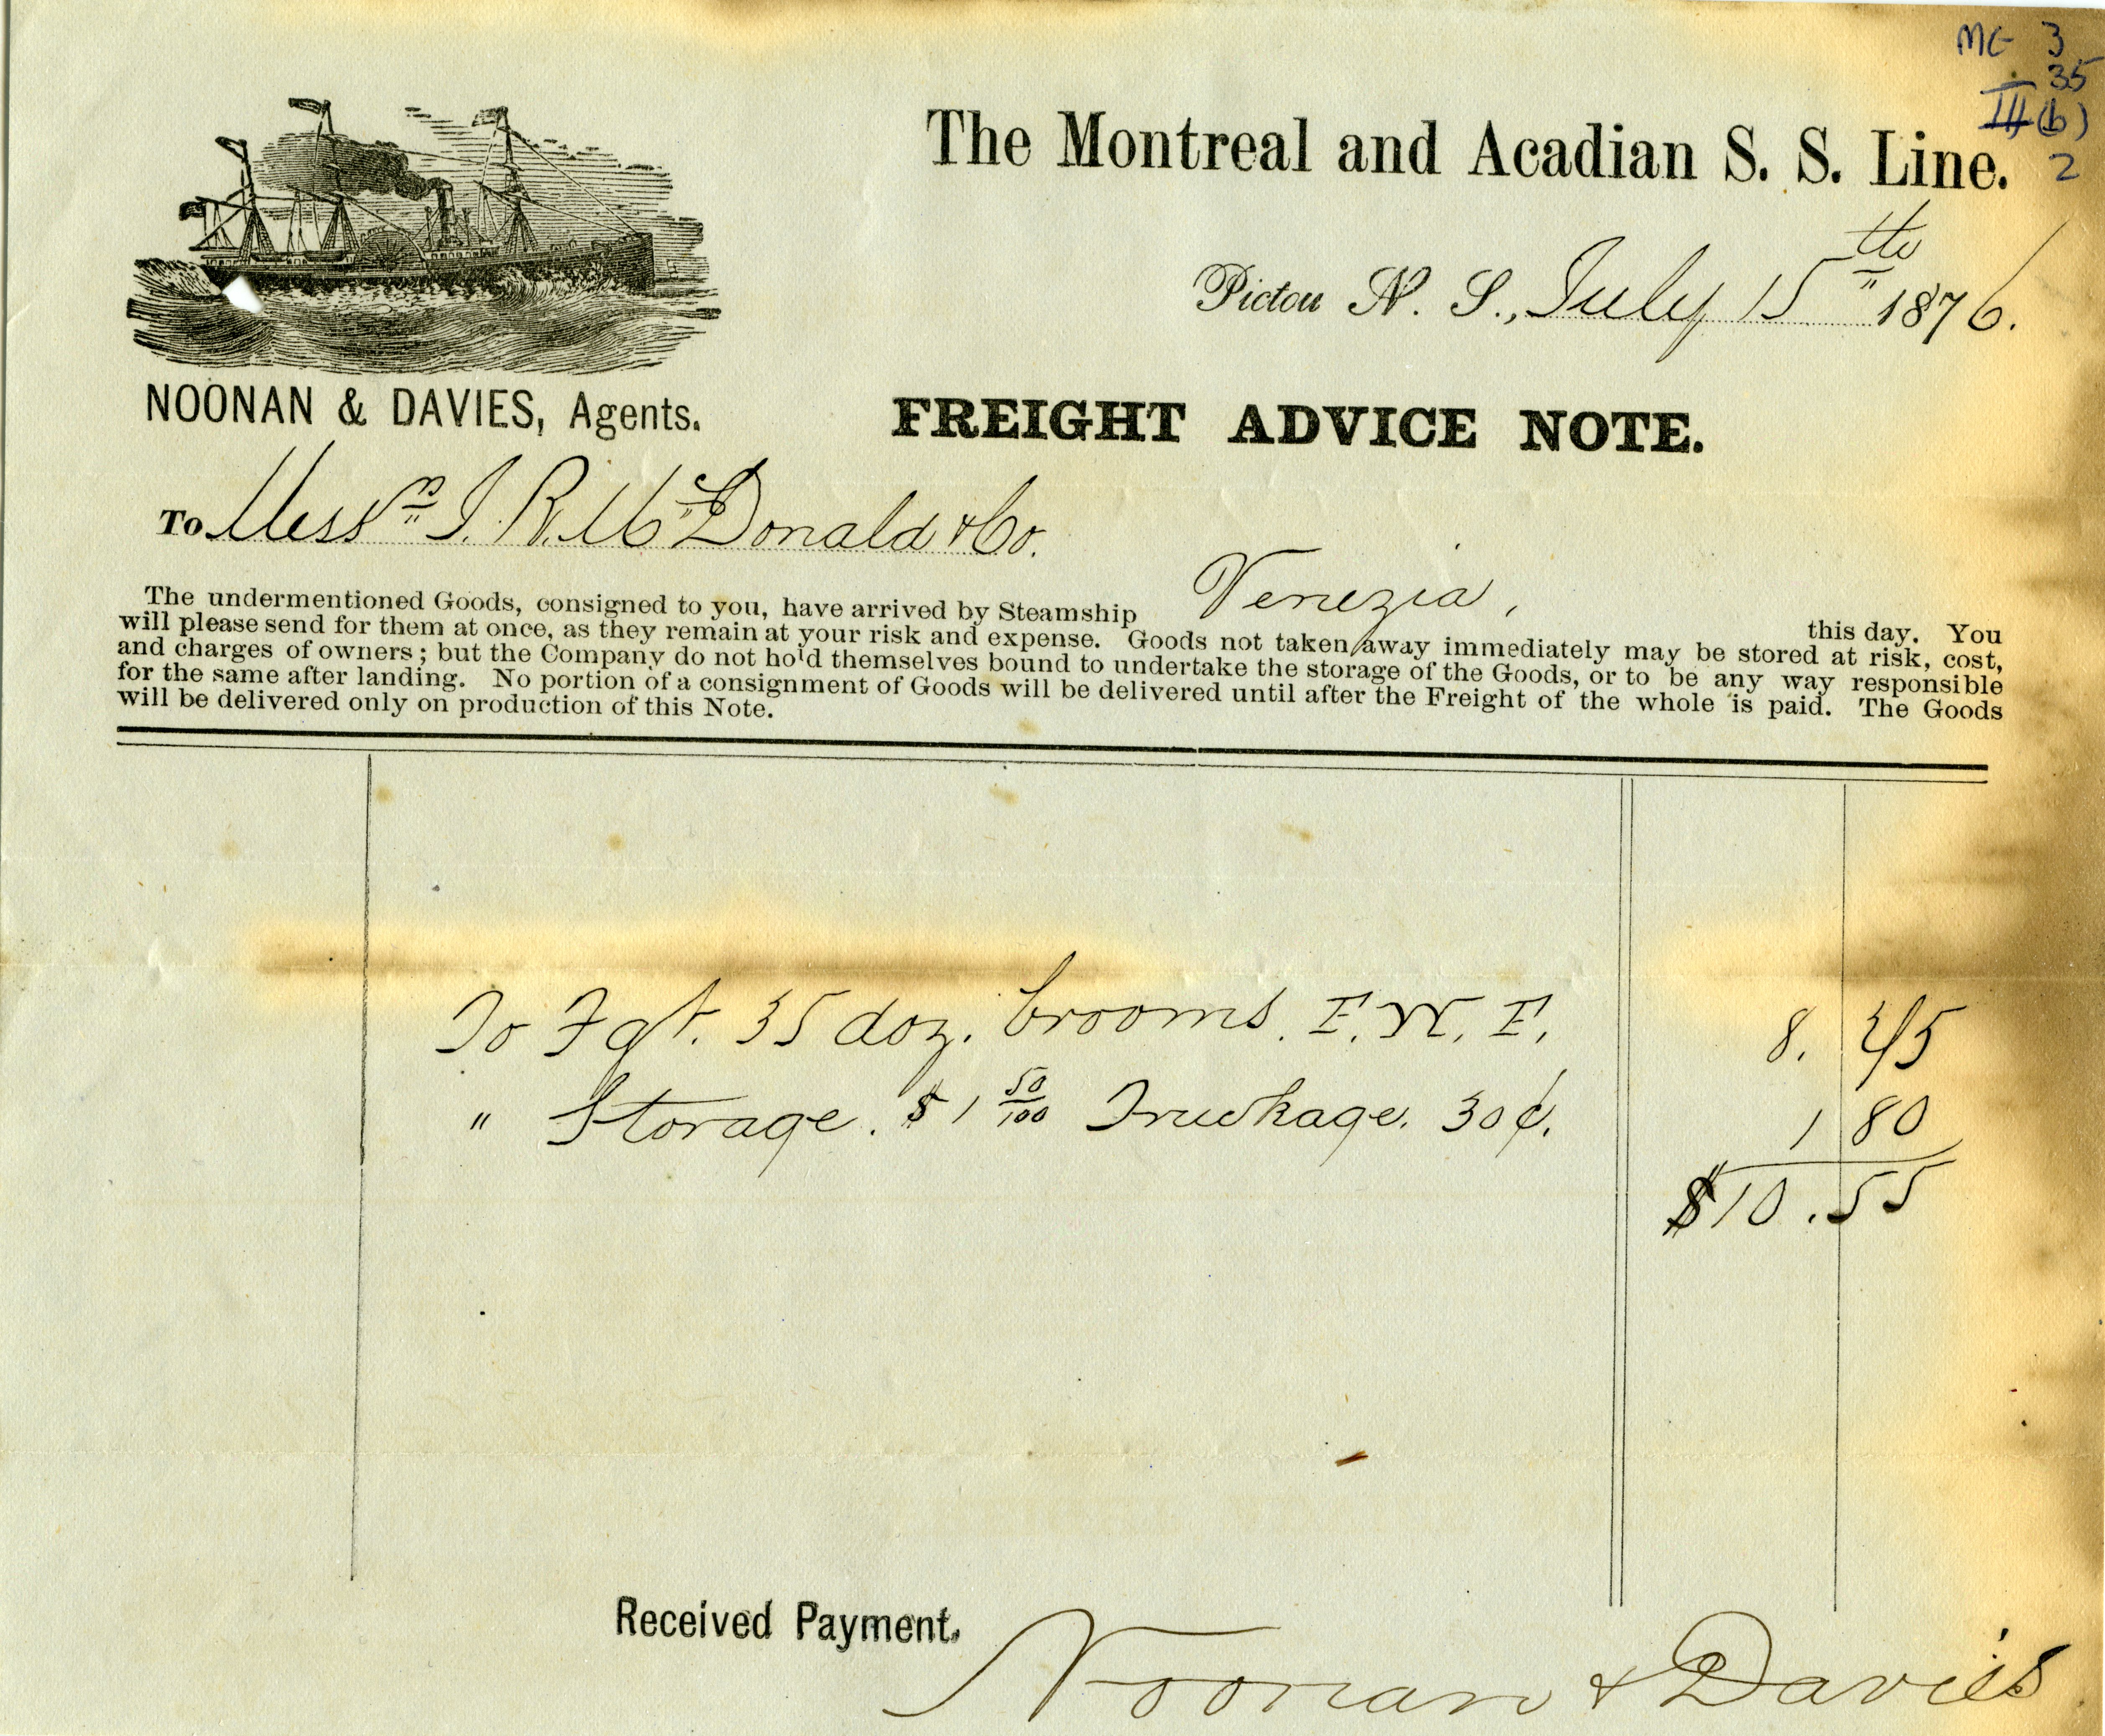 MG 3
35
III (b)
2
The Montreal and Acadian S. S. Line.
Pictou N. S., July 15th 1876.
NOONAN & DAVIES, Agents.
FREIGHT ADVICE NOTE.
To Messrs J. R. McDonald & Co.
The undermentioned Goods, consigned to you, have arrived by Steamship Venezia, this day. You
will please send for them at once, as they remain at your risk and expense. Goods not taken away immediately may be stored at risk, cost,
and charges of owners; but the Company do not hold themselves bound to undertake the storage of the Goods, or to be any way responsible
for the same after landing. No portion of a consignment of Goods will be delivered until after the Freight of the whole is paid. The Goods
will be delivered only on production of this Note.
To Fgt. 35 doz. brooms. 8. 75
" Storage. $1 50/100 Truckage. 30¢. 1 80
$10.55
Received Payment,
Noonan & Davies